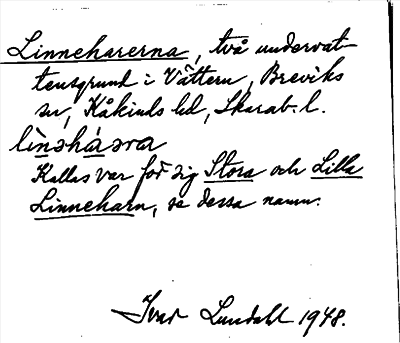 Linneharerna, två undervat-
tensgrund i Vättern, Breviks
sn, Kåkinds hd, Skarab. l.
lìnəhásra
Kallas var för sig Stora och Lilla
Linneharn, se dessa namn.
Ivar Lundahl 1948.